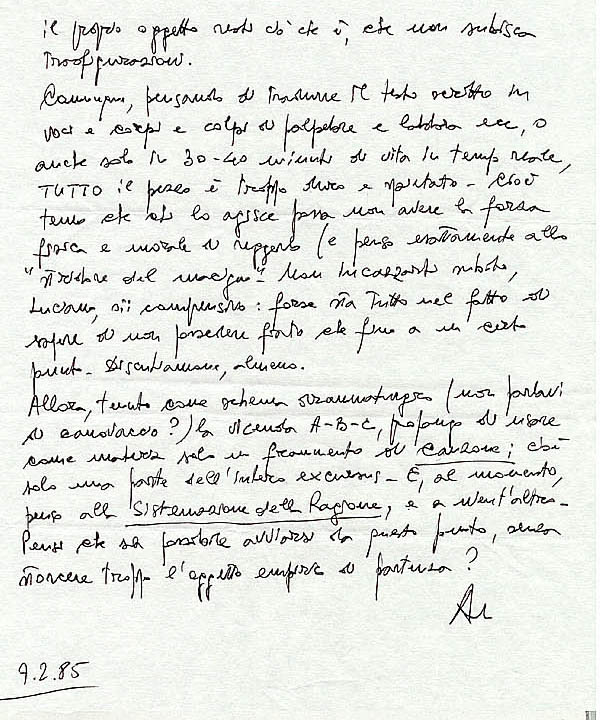 il proprio oggetto resti ciò che è, che non subisca
trasfigurazioni.
Comunque, pensando di tradurre il testo scritto in
voci e corpi e colpi di palpebre e labbra ecc, o
anche solo in 30-40 minuti di vita in tempo reale,
TUTTO il pezzo è troppo duro e spietato - cioè
temo che chi lo agisce possa non avere la forza
fisica e morale di reggerlo (e penso esattamente allo
" del Non incazzarti subito,
Luciano, sii comprensivo: forse sta tutto nel fatto di
sapere di non possedere fiato che fino a un certo
punto - Discutiamone, almeno.
Allora, tenuto come schema drammaturgico (non parlavi
di canovaccio?) la vicenda A-B-C, propongo di usare
come materia solo un frammento di Canzone; cioè
solo una parte dell'intero excursus - E, al momento,
penso alla Sistemazione della Ragione, e a nient'altro -
Pensi che sia possibile avviarsi da questo punto, senza
storcere troppo l'oggetto empirico di partenza?
9.2.85